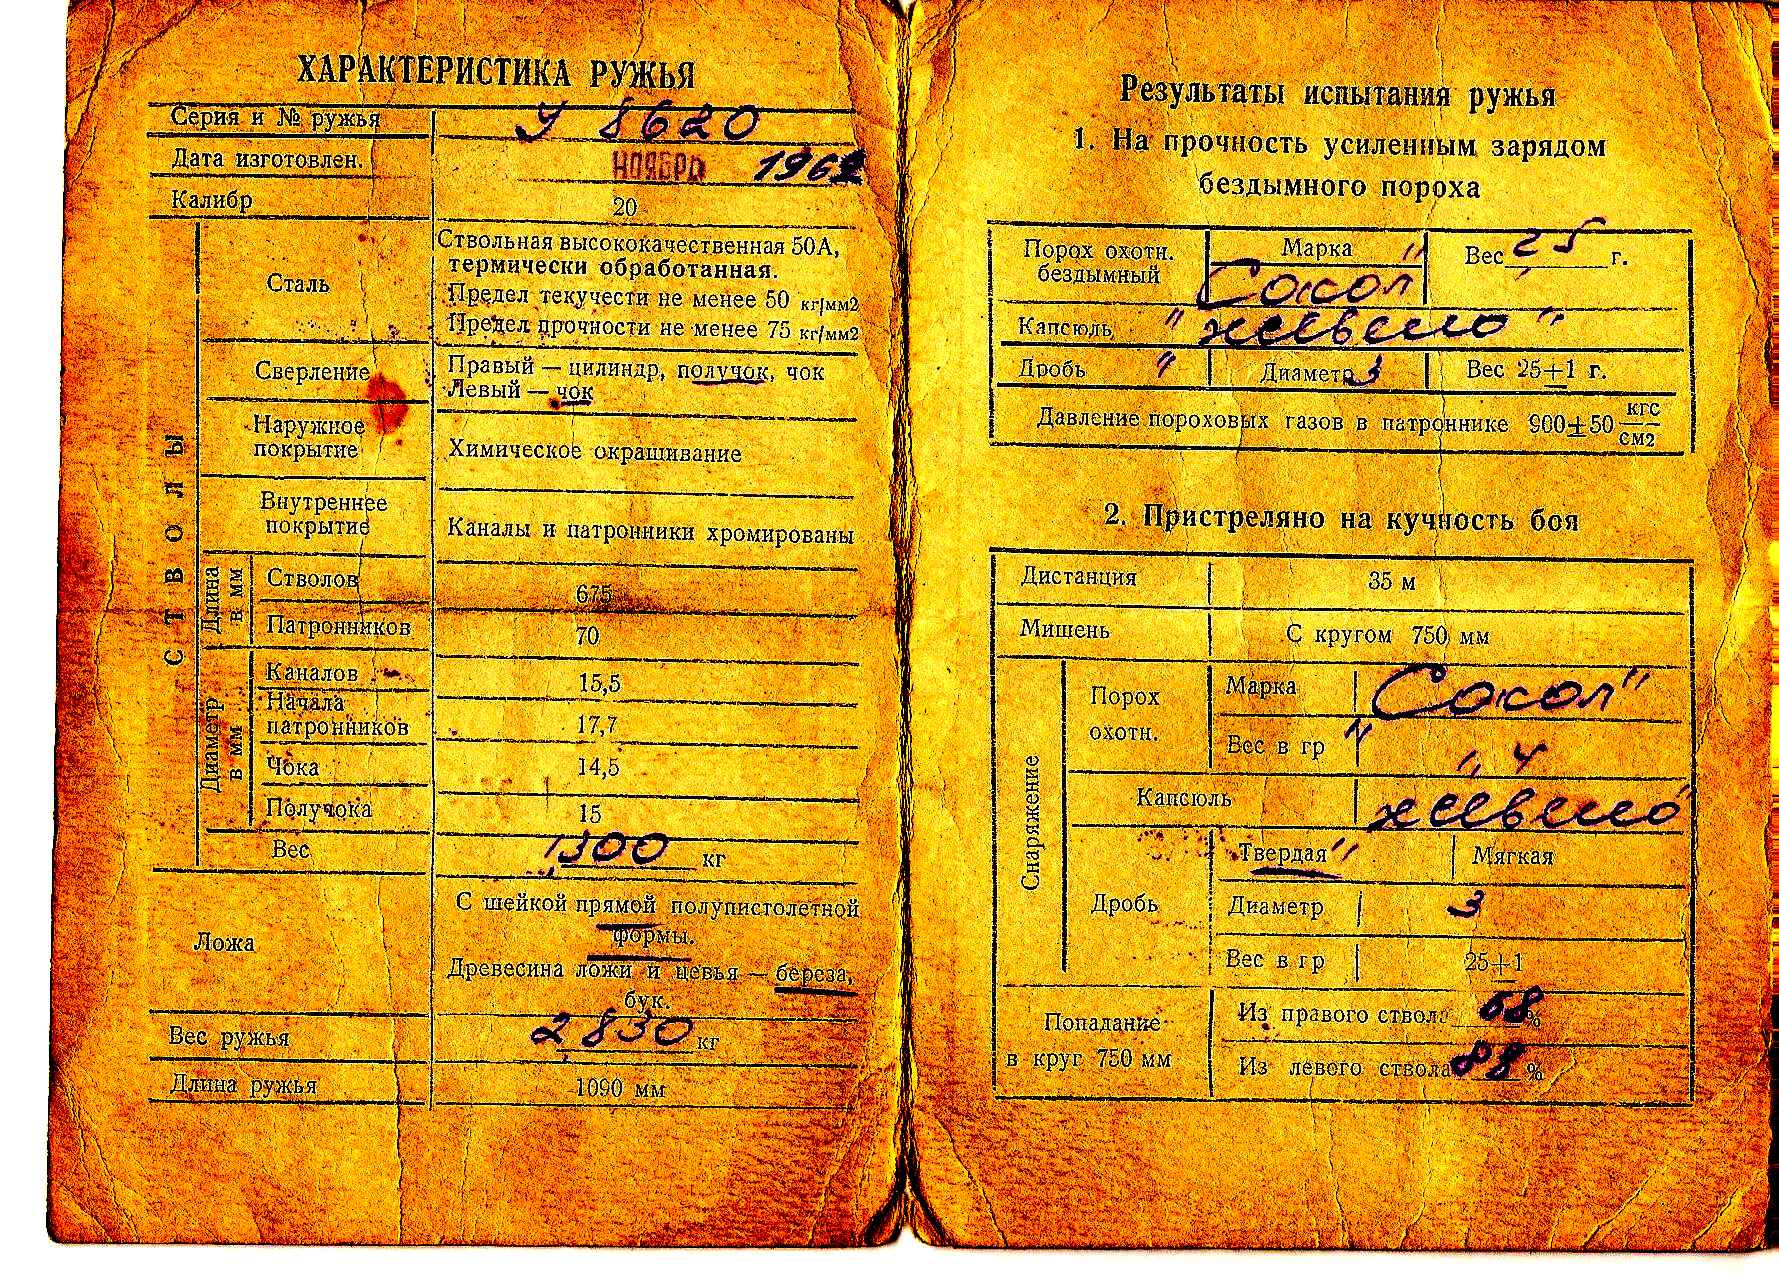 ХАРАКТЕРИСТИКА РУЖЬЯ
Серия и № ружья У 8620
Дата изготовлен. НОЯБРЬ 1962
Калибр 20
СТВОЛЫ
Сталь
Ствольная высококачественная 50А,
термически обработанная.
Предел текучести не менее 50 кг/мм2
Предел прочности не менее 75 кг/мм2
Сверление
Правый — цилиндр, получок, чок
Левый — чок
Наружное
покрытие
Химическое окрашивание
Внутреннее
покрытие
Каналы и патронники хромированы
Длина
в мм
Стволов 675
Патронников 70
Диаметр
в мм
Каналов 15,5
Начала
патронников 17,7
Чока 14,5
Получока 15
Вес 1300 кг
Ложа
С шейкой прямой полупистолетной
формы.
Древесина ложи и цевья — береза,
бук.
Вес ружья 2830 кг
Длина ружья 1090 мм
Результаты испытания ружья
1. На прочность усиленным зарядом
бездымного пороха
Порох охотн.
бездымный
Марка "
Сокол
Вес 2,5 г.
Капсюль "жевело"
Дробь " Диаметр 3 Вес 25±1 г.
Давление пороховых газов в патроннике 900±50 кгс/см2
2. Пристреляно на кучность боя
Дистанция 35 м
Мишень С кругом 750 мм
Снаряжение
Порох
охотн.
Марка Сокол"
Вес в гр "
Капсюль жевело"
Дробь
Твердая" Мягкая
Диаметр 3
Вес в гр 25±1
Попадание
в круг 750 мм
Из правого ствола 68 %
Из левого ствола 88 %